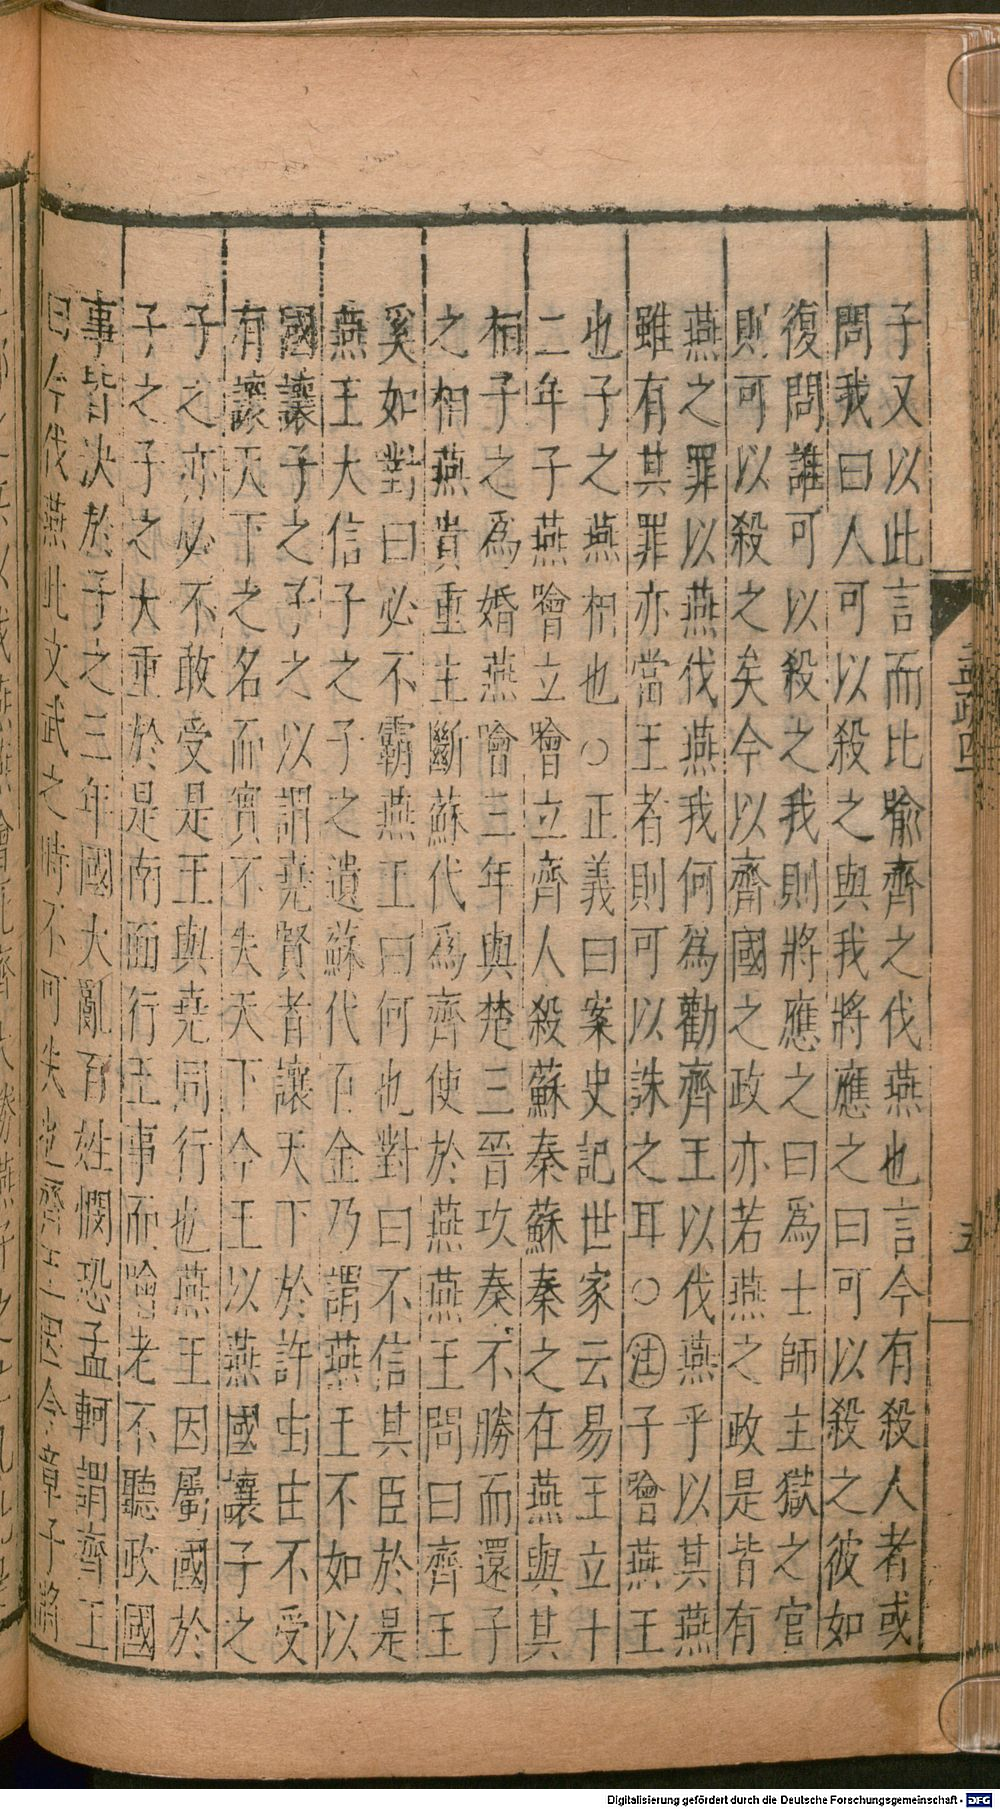 子又以此言而比喻齊之伐燕也言今有殺人者或
問我曰人可以殺之與我將應之曰可以殺之彼如
復問誰可以殺之我則將應之曰爲士師主獄之官
則可以殺之矣今以齊國之政亦若燕之政是皆有
燕之罪以燕伐燕我何爲勸齊王以伐燕乎以其燕
雖有其罪亦當王者則可以誅之耳○注子噲燕王
也子之燕相也○正義曰案史記世家云易王立十
二年子燕噲立噲立齊人殺蘇秦蘇秦之在燕與其
相子之爲婚燕噲三年與楚三晉攻秦不勝而還子
之相燕貴重主斷蘇代爲齊使於燕燕王問曰齊王
奚如對曰必不霸燕王曰何也對曰不信其臣於是
燕王大信子之子之遺蘇代百金乃謂燕王不如以
國讓子之子之以謂堯賢者讓天下於許由由不受
有讓天下之名而實不失天下今王以燕國讓子之
子之亦必不敢受是王與堯同行也燕王因屬國於
子之子之大重於是南面行王事而噲老不聽政國
事皆決於子之三年國大亂百姓恫恐孟軻謂齊王
曰今伐燕此文武之時不可失也齊王因令章子將
Digitalisierung gefördert durch die Deutsche Forschungsgemeinschaft - DFG